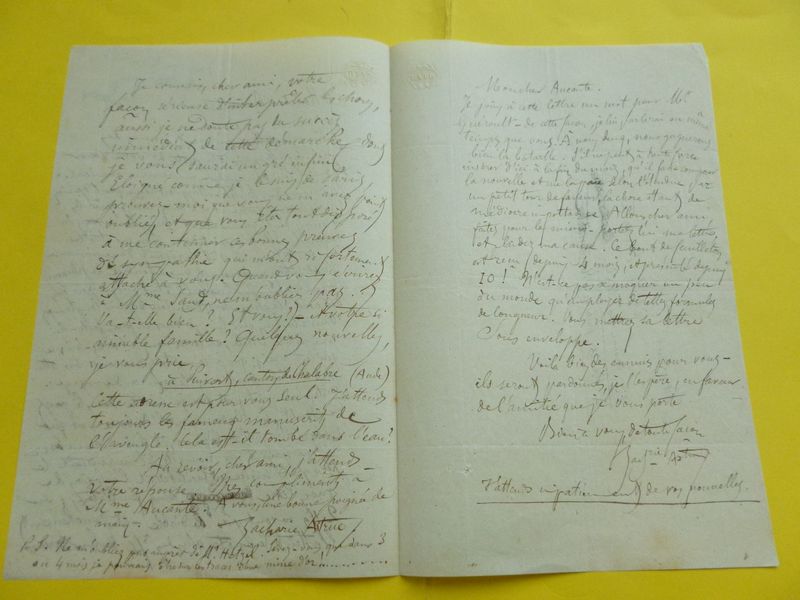 Je connais, cher ami, votre
façon sérieuse d'interpréter les choses,
aussi je ne doute pas du succès
de cette démarche dont
je vous saurai un gré infini
Eloigné comme je le suis de Paris,
prouvez-moi que vous ne m'avez point
oublié et que vous êtes tout disposé
à me continuer ces bonnes preuves
de sympathie qui m'ont si fortement
attaché à vous. Quand vous écrirez
à Mme Sand, ne m'oubliez pas.
Va-t-elle bien? Et vous? – Et votre si
aimable famille? Quelques nouvelles,
je vous prie,
à Puivert, canton de Chalabre (Aude)
Cette adresse est pour vous seul. J'attends
toujours les fameux manuscrits de
Cela est-il tombé dans l'eau?
Au revoir, cher ami, j'attends
votre réponse. Mes compliments à
Mme Aucante. A vous, une bonne poignée de
main
Zacharie Astruc
P.S. Ne m'oubliez pas auprès de Mr Hetzel. que dans 3
ou 4 mois, je pourrais être sur les traces d'une mine d'or........
Mon cher Aucante.
Je joins à cette lettre un mot pour Mr
Guéroult – de cette façon, je lui parlerai en même
temps que vous. A nous deux, nous gagnerons
bien la bataille. à toute force
d'ici à la fin du mois, qu'il fasse composer
la nouvelle et me la paie selon l'étendue par
un petit tour de faveur, la chose étant de
médiocre importance. Allons cher ami,
faites pour le mieux – portez lui ma lettre,
et plaidez ma cause. Ce de feuilletons
est reçu depuis 4 mois, et promis depuis
10! N'est-ce pas se moquer un peu
du monde qu'employer de telles formules
de longueur. Vous mettrez sa lettre
sous enveloppe.
Voilà bien des ennuis pour vous –
ils seront pardonnés, je l'espère, en faveur
de l'amitié que je vous porte
Bien à vous de toute façon
Zacharie Astruc
J'attends impatiemment de vos nouvelles.